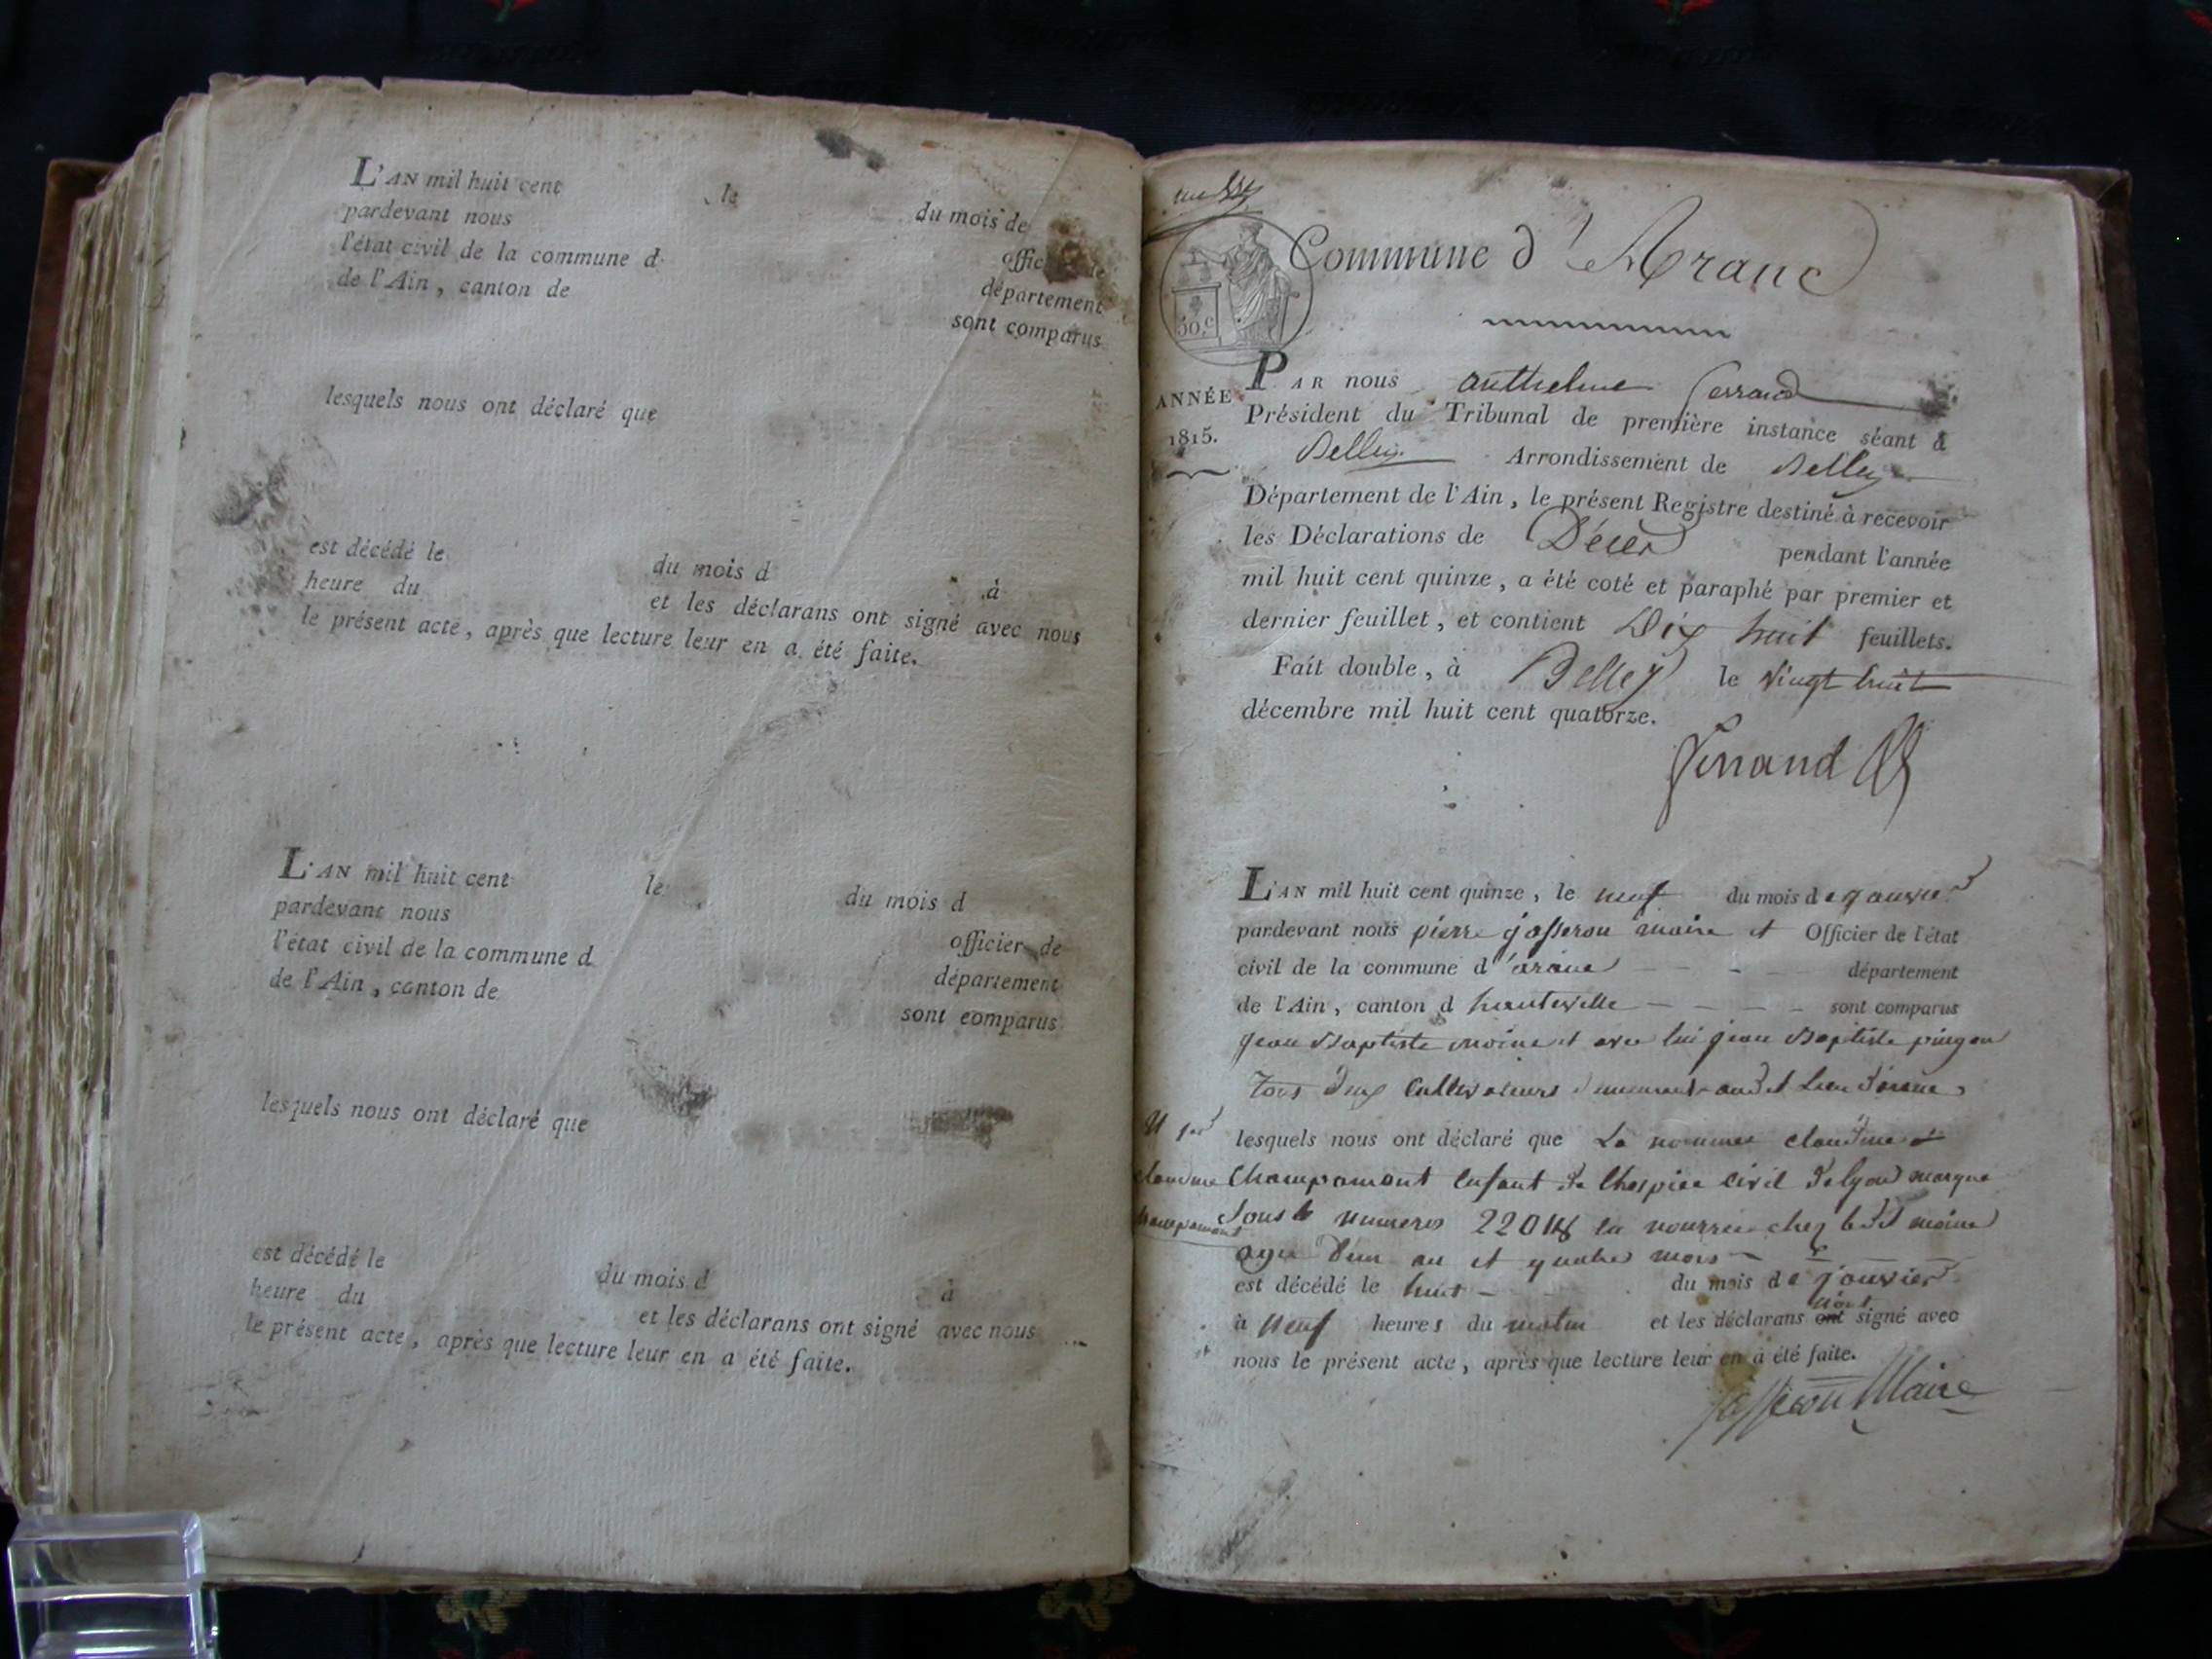 L'AN mil huit cent le du mois de
pardevant nous officier de
l'état civil de la commune d département
de l'Ain, canton de sont comparus
lesquels nous ont déclaré que
est décédé le du mois d à
heure du et les déclarans ont signé avec nous
le présent acte, après que lecture leur en a été faite.
L'AN mil huit cent le du mois d
pardevant nous officier de
l'état civil de la commune d département
de l'Ain, canton de sont comparus
lesquels nous ont déclaré que
est décédé le du mois d à
heure du et les déclarans ont signé avec nous
le présent acte, après que lecture leur en a été faite.
Commune d'Aranc
50.c
ANNÉE
1815.
PAR nous anthelme ferrand
Président du Tribunal de première instance séant à
Belley Arrondissement de Belley
Département de l'Ain, le présent Registre destiné à recevoir
les Déclarations de Décès pendant l'année
mil huit cent quinze, a été coté et paraphé par premier et
dernier feuillet, et contient Dix huit feuillets.
Fait double, à Belley le vingt huit
décembre mil huit cent quatorze.
Ferrand
L'AN mil huit cent quinze, le neuf du mois de janvier
pardevant nous pierre josseron maire et Officier de l'état
civil de la commune d'aranc département
de l'Ain, canton d hauteville sont comparus
jean Baptiste moine et avec lui jean Baptiste pingon
Tous deux Cultivateurs demeurant audit Lieu d'aranc
N 1er
claudine
champomont
lesquels nous ont déclaré que La nommée claudine
Champomont Enfant de lhospice civil de lyon marque
Sous le numero 22018 en nourrice chez ledit moine
agee d'un an et quatre mois
est décédé le huit du mois de janvier
à neuf heures du matin et les déclarans ont n'ont signé avec
nous le présent acte, après que lecture leur en a été faite.
josseron Maire